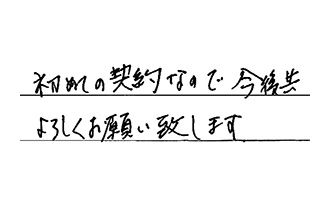 初めての契約なので今後共
よろしくお願い致します